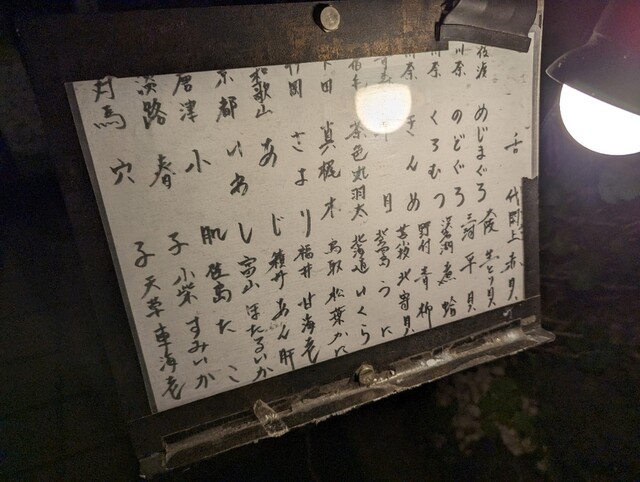 舌 竹岡 上 赤貝
佐渡 めじまぐろ 大阪 貝
川奈 のどぐろ 三河 平貝
川奈 くろむつ 浜名湖 煮蛤
川奈 きんめ 野付 青柳
月 苫小牧 北寄貝
茶色丸羽太 北方四島 うに
下田 真梶木 北海道 いくら
竹岡 さより 鳥取 松葉かに
和歌山 あじ 福井 甘海老
京都 いわし 積丹 あん肝
唐津 小肌 富山 ほたるいか
淡路 春子 佐島 たこ
対馬 穴子 小柴 すみいか
天草 車海老